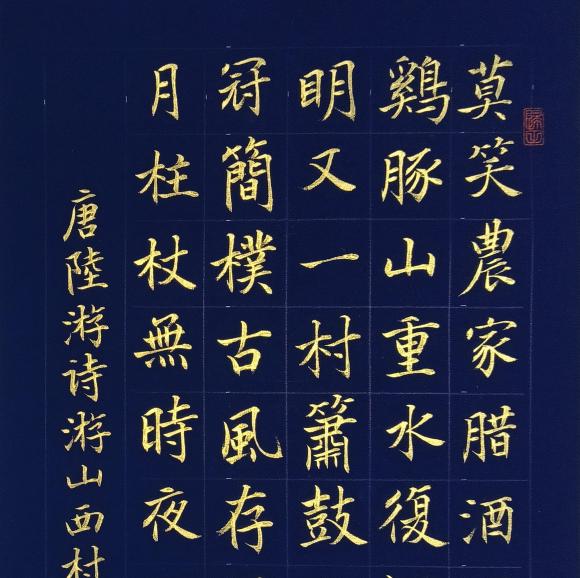 莫笑農家腊酒
鷄豚山重水復
明又一村簫鼓
冠簡樸古風存
月柱杖無時夜
唐陸游诗游山西村